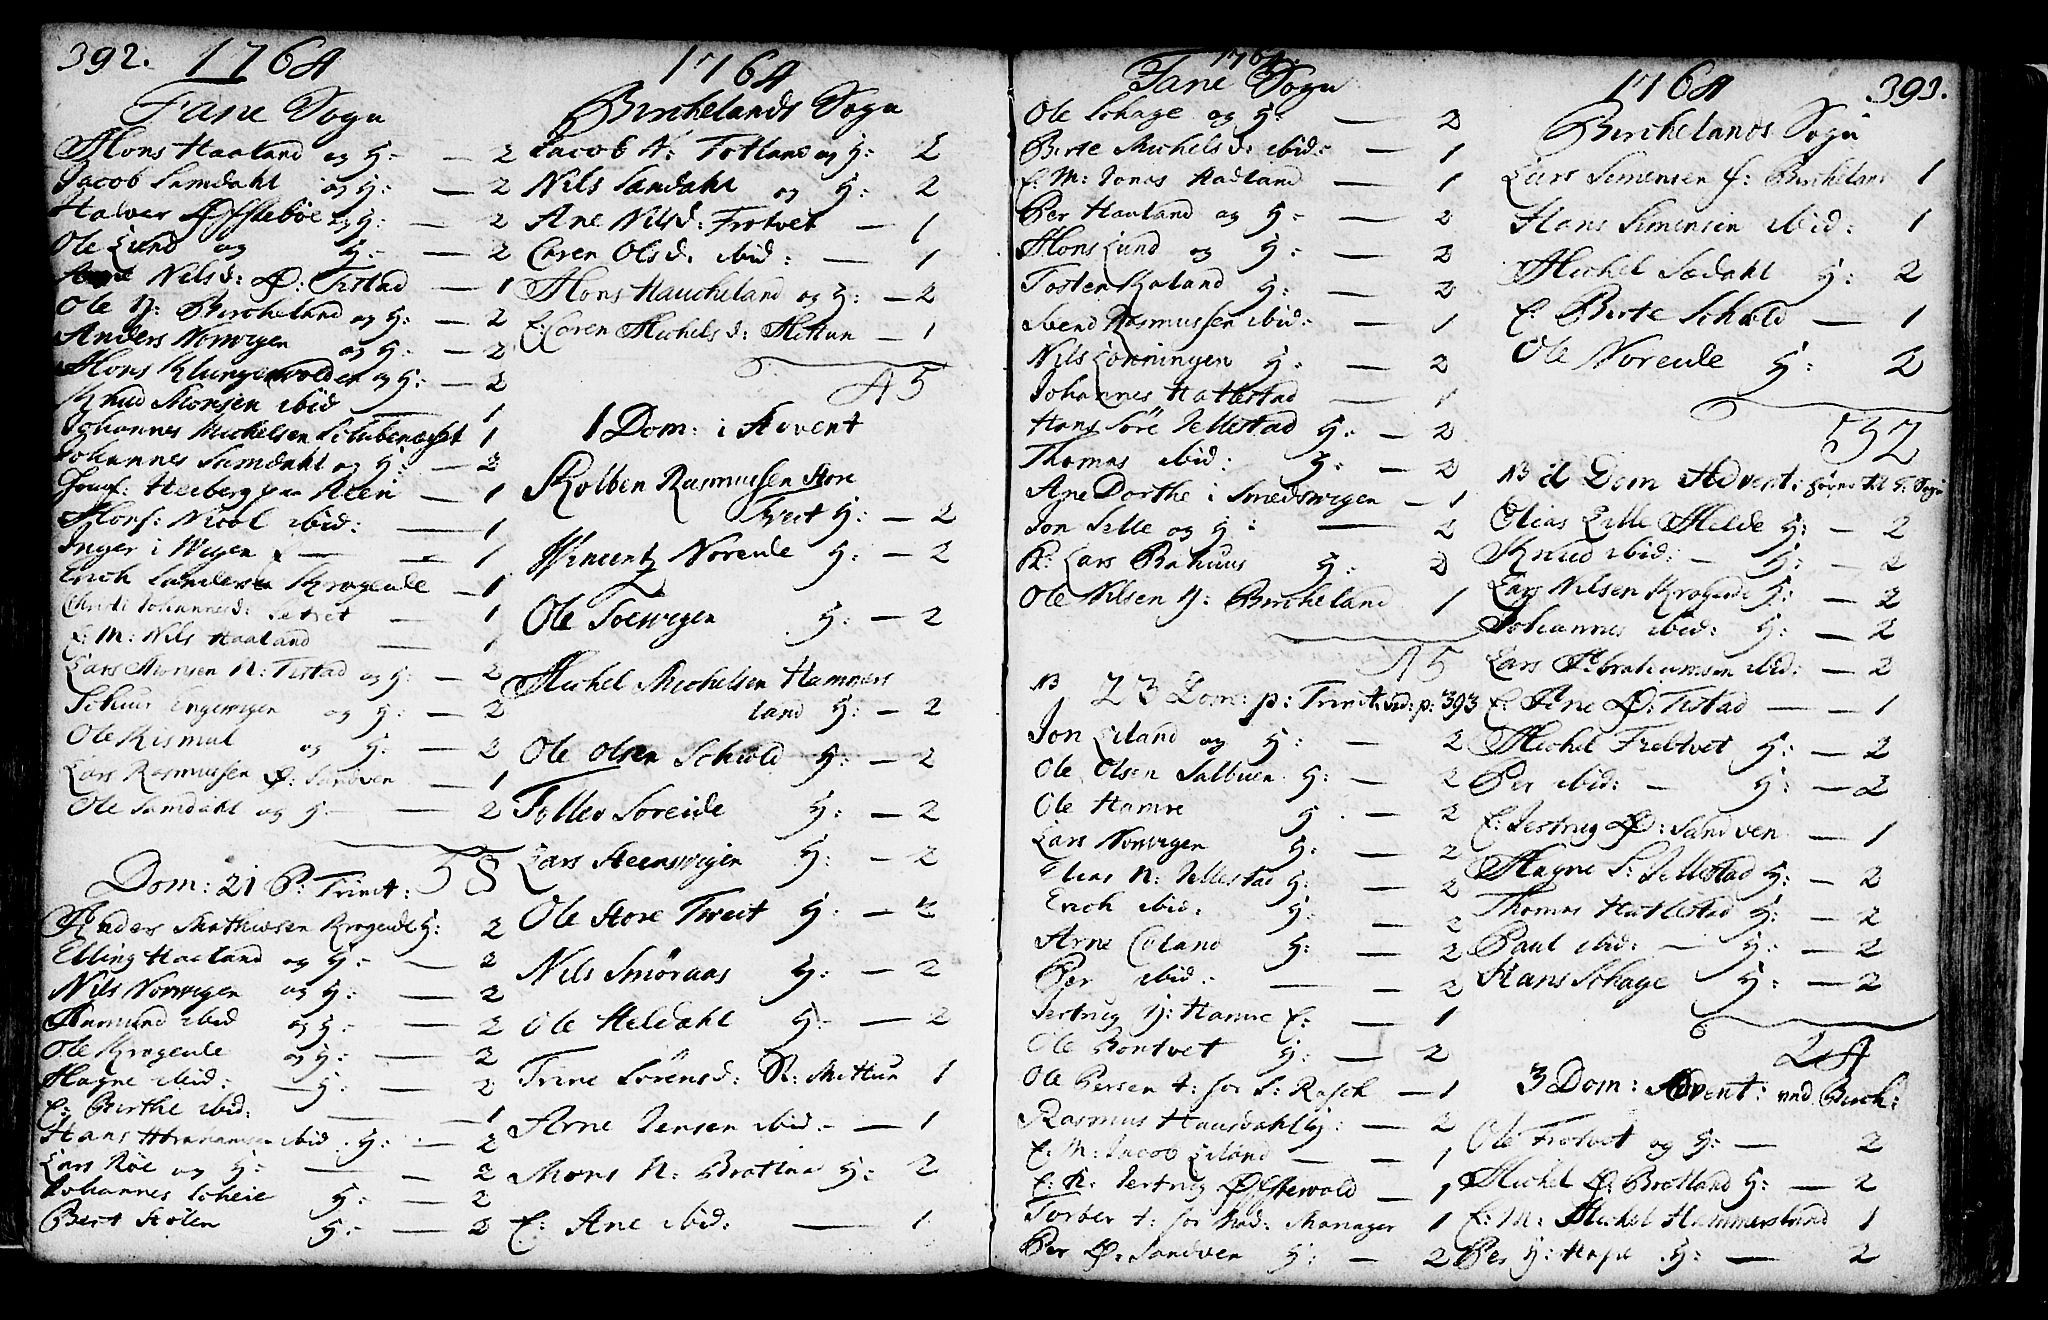 392. 1764
Fane Sogn
Mons Haaland og H: — 2
Jacob Samdahl og H: — 2
Halvor Øfstebøe og H: — 2
Ole Lund og H: — 2
Nilsd: Ø: Tistad — 1
Ole Y: Bircheland og H: — 2
Anders Norwigen og H: — 2
Mons Klungervolden og H: — 2
Knud Monsen ibid — 1
Johannes Michelsen 1
Johannes Samdahl og H: — 2
Jomf: Heiberg paa — 1
Mons: Nicol ibid: — 1
Inger i Wigen — 1
Erich Krogeide — 1
Johannesd: — 1
E: M: Nils Haaland — 1
Lars Monsen N: Tistad og H: — 2
Engewigen og H: — 2
Ole Rismul og H: — 2
Lars Rasmussen Ø: Sandven — 1
Ole Samdahl og H: — 2
58
Dom: 21 P: Trinit:
Anders Mathiesen Krogeide H: 2
Elling Haaland og H: — 2
Nils Norwigen og H: — 2
Aamund ibid og H: — 2
Ole Krogeide og H: — 2
Hagne ibid: — H: — 2
E: Birthe ibid: — 1
Hans Abrahamsen ibid. H: — 2
Lars Røe og H: — 2
Johannes H: — 2
Bert H: — 2
1764
Birchelands Sogn
Jacob N: Totland og H: 2
Nils Samdahl og H: 2
Ane Nilsd: Frotvet — 1
Caren Olsd: ibid: — 1
Mons Haucheland og H: — 2
E: Caren Michelsd: Mittun — 1
45
1 Dom: i Advent
Kolben Rasmussen Store
Tveit H: — 2
Wincentz Noreide H: — 2
Ole H: — 2
Michel Michelsen Hammers
land H: — 2
Ole Olsen Schiold H: — 2
Tollev Soreide H: — 2
Lars Steenswigen H: — 2
Ole Store Tveit H: — 2
Nils Smøraas H: — 2
Ole Heldahl H: — 2
Trine Sørensd: Mittun 1
Arne Jensen ibid: — 1
Mons N: Bratland H: 2
E: Ane ibid: — 1
1764
Fane Sogn
Ole Schage og H: — 2
Birte Michelsd: ibid: — 1
E: M: Jonas Haaland — 1
Per Haaland og H: — 2
Mons Lund og H: — 2
Tosten H: — 2
Svend Rasmussen ibid: — 1
Nils Lønningen H: — 2
Johannes Hatlestad — 1
Hans Søre Jellestad H: — 2
Thomas ibid: H: — 2
Ane Dorthe i Smedswigen — 1
Jon Lille og H: — 2
R: Lars H: 2
Ole Nilsen Y: Bircheland 1
45
NB 23 Dom: p: Trinit: vid: p: 393
Jon Liland og H: — 2
Ole Olsen Salbuen H: — 2
Ole Hamre H. — 2
Lars Norwigen H: — 2
Elias N: Jellestad H: — 2
Erich ibid: H: — 2
Arne H: — 2
Per ibid: — 2
Jertrug Y: Hamre E: — 1
Ole Bontvet H: — 2
Ole Persen — 1
Rasmus Hausdahl H: — 2
E: M: Jacob Liland — 1
E: N: Jertrug Øfstevold — 1
Torber 1
Per Ø: Sandven H: — 2
1764 393.
Birchelands Sogn
Lars Simensen Bircheland 1
Hans Simensen ibid: 1
Michel Sædahl H: 2
E: Birte Schiold — 1
Ole Noreide H: 2
532
NB 2 Dom Advent: til F: Sogn
Elias Lille Milde H: — 2
Knud ibid: — H: — 2
Lars Nilsen Krogeide H: — 2
Johannes ibid: H: — 2
Lars Abrahamsen ibid: — 2
E: Ane Ø: Tistad — 1
Michel Frotvet H: — 2
Per ibid: — H: — 2
E: Jertrug Ø: Sandven — 1
Hagne S: Jellestad H: — 2
Thomas Hatlestad H: — 2
Paul ibid: — H: — 2
Hans Schage H: — 2
24
3 Dom: Advent: ved Birch:
Ole Frotvet og H: — 2
Michel Ø: Bratland H: — 2
E: M: Michel Hammersland 1
Per Y: Hope H: — 2